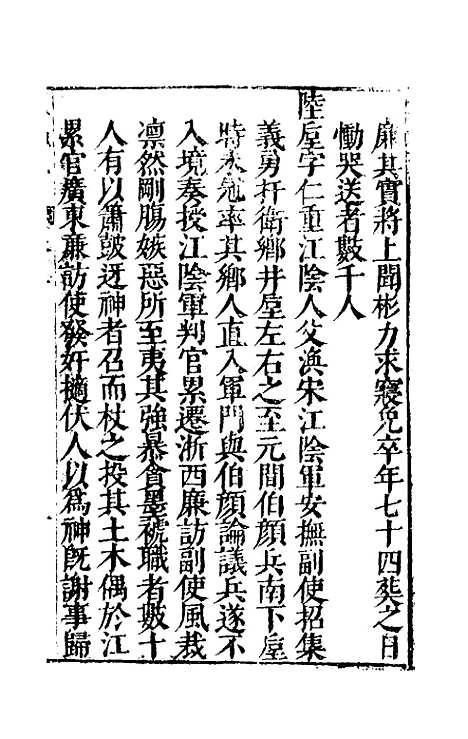 廉其實將上聞彬力求寢免卒年七十四葬之日
慟哭送者數千人
陸垕字仁重江陰人父渙宋江陰軍安撫副使招集
義勇扞衛鄉井垕左右之至元間伯顔兵南下垕
時未冠率其鄉人直入軍門與伯顔論議兵遂不
入境奏授江陰軍判官累遷浙西廉訪副使風裁
凛然剛腸嫉惡所至夷其強暴貪墨褫職者數十
人有以簫鼓迓神者召而杖之投其土木偶於江
累官廣東廉訪使發奸擿伏人以爲神旣謝事歸